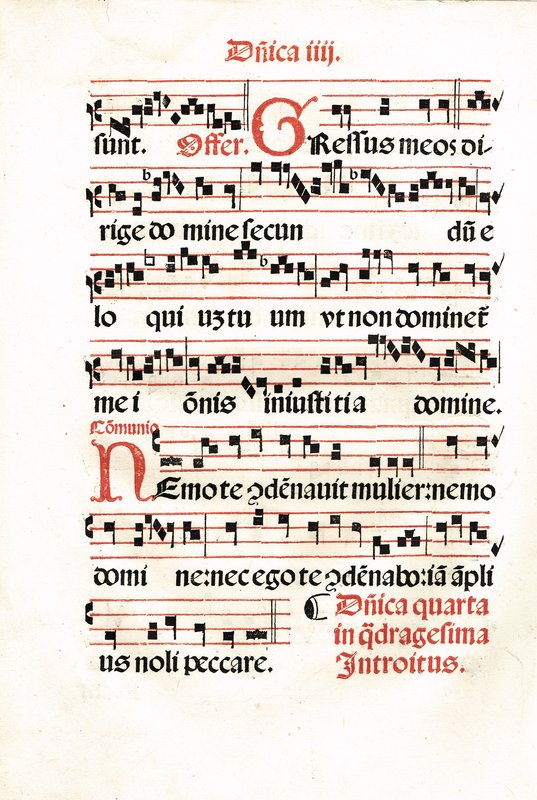 Dñica iiij.
sunt. Offer. GRessus meos di-
rige do mine secun dũ e
lo qui uꝫ tu um vt non dominet̃
me i õnis iniustitia domine.
Cõmunio
NEmo te ꝯdẽnauit mulier: nemo
domi ne: nec ego te ꝯdẽnabo: iã ãpli
us noli peccare.
Dñica quarta
in q̃dragesima
Introitus.